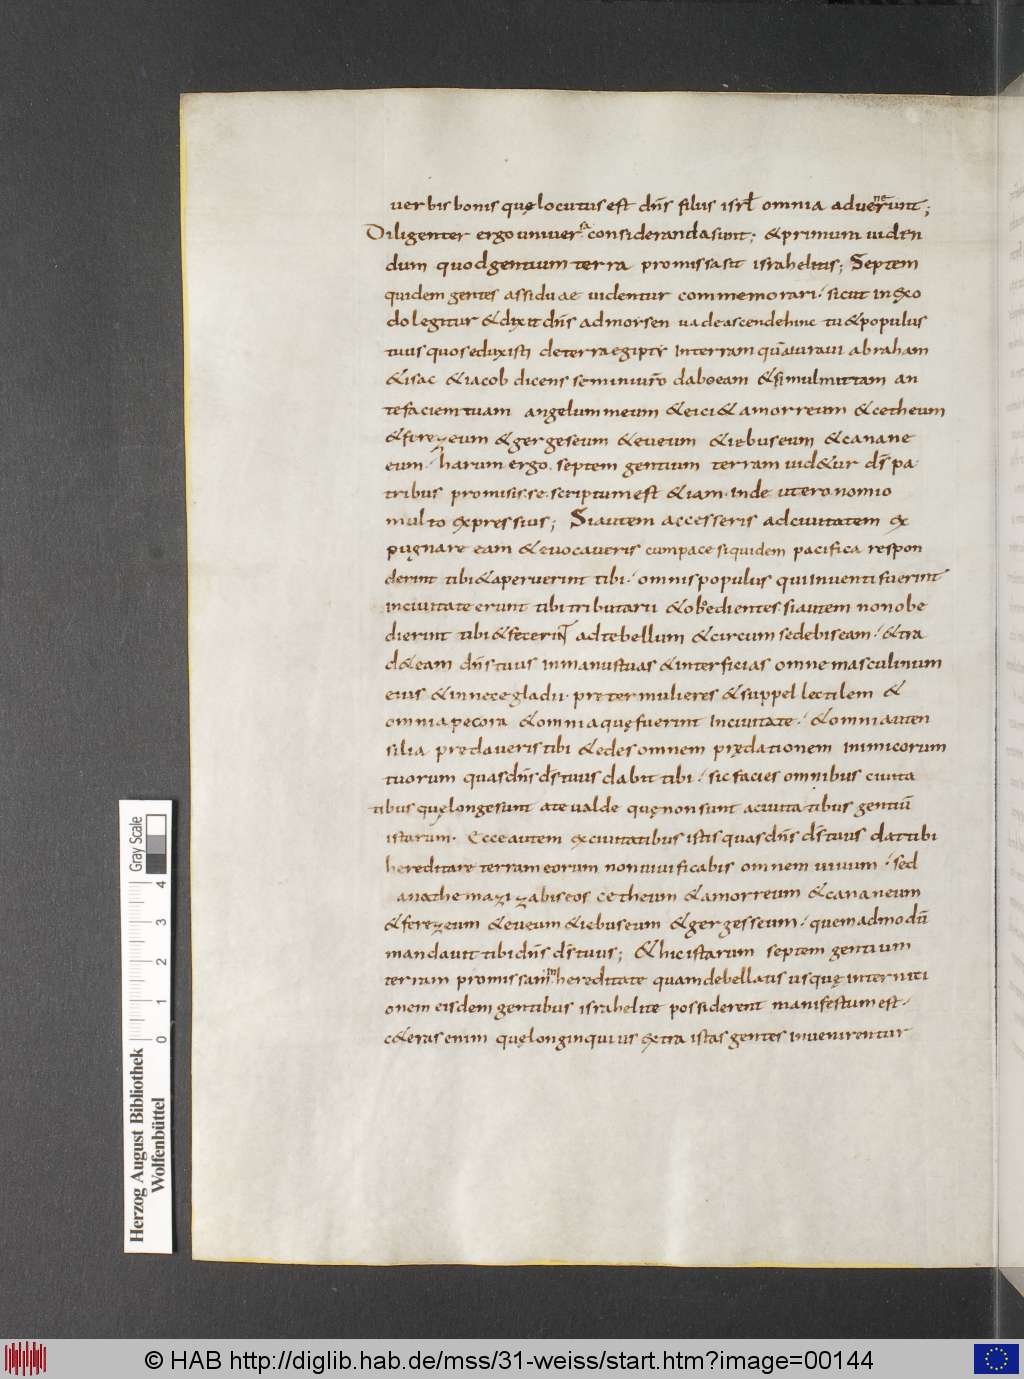 uerbis bonis quę locutus est dn̄s filiis isrl̄ omnia aduenerunt;
Diligenter ergo uniuersa consideranda sunt; & primum uiden
dum quod gentium terra promissa sit israhelitis; Septem
quidem gentes assiduae uidentur commemorari. sicut in exo
do legitur & dixit dn̄s ad morsen uade ascende hinc tu & populus
tuus quos eduxisti de terra egipti in terram quā iuraui abraham
& isac & iacob dicens semini ur̄o dabo eam & simul mittam an
te faciem tuam angelum meum & eici& amorreum & cetheum
& ferezeum & gergeseum & eueum & iebuseum & canane
eum. harum ergo septem gentium terram uid&ur ds̄ pa
tribus promisisse. scriptum est &iam. inde uteronomio
multo expressius; Si autem accesseris ad ciuitatem ex
pugnare eam & euocaueris cum pace siquidem pacifica respon
derint tibi & aperuerint tibi. omnis populus qui inuenti fuerint
in ciuitate erunt tibi tributarii & obedientes. si autem non obe
dierint tibi & fecerint ad te bellum & circumsedebis eam. & tra
d& eam dn̄s tuus in manus tuas & interficias omne masculinum
eius & in nece gladii. preter mulieres & suppellectilem &
omnia pecora & omnia quę fuerint in ciuitate. & omnia uten
silia predaueris tibi & edes omnem prędationem inimicorum
tuorum quas dn̄s ds̄ tuus dabit tibi. sic facies omnibus ciuita
tibus quę longe sunt a te ualde quę non sunt a ciuitatibus gentiū
istarum. Ecce autem ex ciuitatibus istis quas dn̄s ds̄ tuus dat tibi
hereditare terram eorum non uiuificabis omnem uiuum. sed
anathemazizabis eos cetheum & amorreum & cananeum
& ferezeum & eueum & iebuseum & gergesseum. quemadmodū
mandauit tibi dn̄s ds̄ tuus; & hic istarum septem gentium
terram promissam in hereditate quam debellatis usquę interniti
onem eisdem gentibus israhelite possiderent manifestum est.
c&eras enim quę longinquius extra istas gentes inuenirentur
Gray Scale
0 1 2 3 4
Herzog August Bibliothek
Wolfenbüttel
© HAB http://diglib.hab.de/mss/31-weiss/start.htm?image=00144